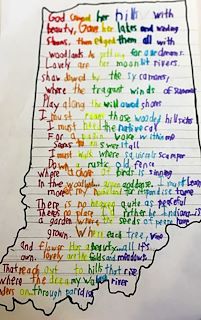 God draped her hills with
beauty, Gave her lakes and winding
streams, then edged them all with
woodlands as setting for our dreams.
Lovely are her moonlit rivers.
shadowed by the sycamores,
where the fragrant winds of summer
Play along the willowed shores
I must roam those wooded hillsides
I must heed the native call
For a pagan voice within me
seems to answer it all
I must walk where squirrels scamper
Down a rustic old fence
where a choir of birds is singing
In the woodland green and dense. I must learn
my homeland for paradise tame
There is no heaven quite as peaceful
There's no place I'd rather be. Indiana is
the garden where the seeds of peace have
grown. Where each tree, vine
And flower has a beauty all its
own. Lovely are the fields and meadows
That reach out to hills that rise
where the dreamy Wabash river
through paradise